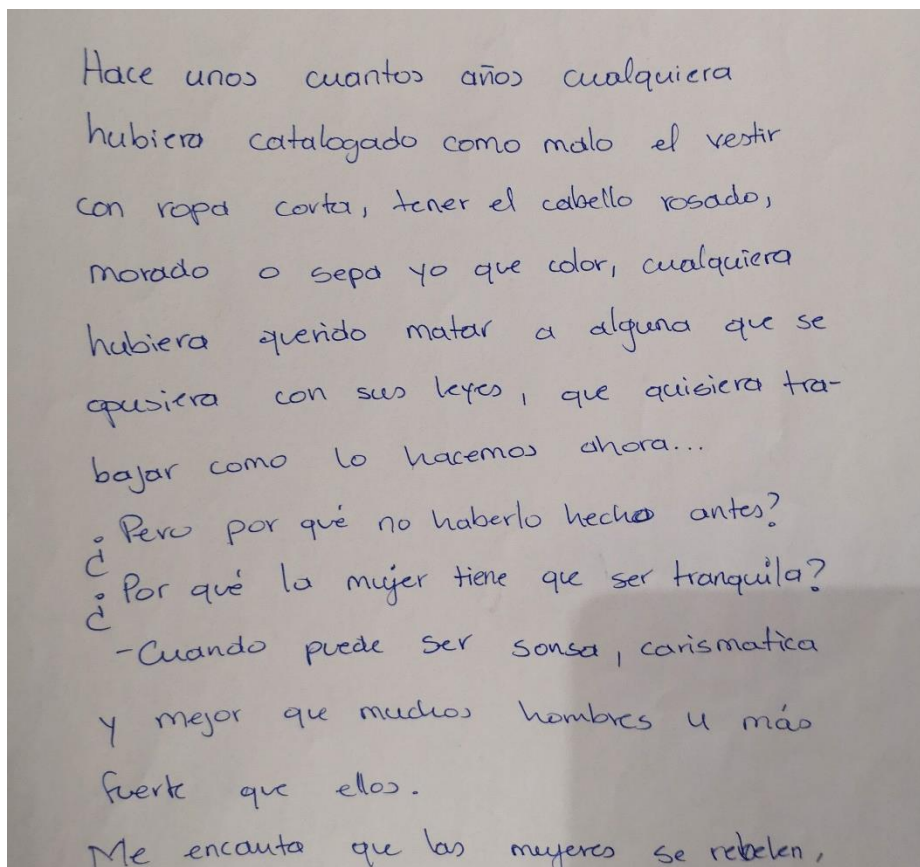 Hace unos cuantos años cualquiera
hubiera catalogado como malo el vestir
con ropa corta, tener el cabello rosado,
morado o sepa yo que color, cualquiera
hubiera querido matar a alguna que se
opusiera con sus leyes, que quisiera tra-
bajar como lo hacemos ahora...
¿Pero por qué no haberlo hecho antes?
¿Por qué la mujer tiene que ser tranquila?
-Cuando puede ser sonsa, carismatica
y mejor que muchos hombres u más
fuerte que ellos.
Me encanta que las mujeres se rebelen,